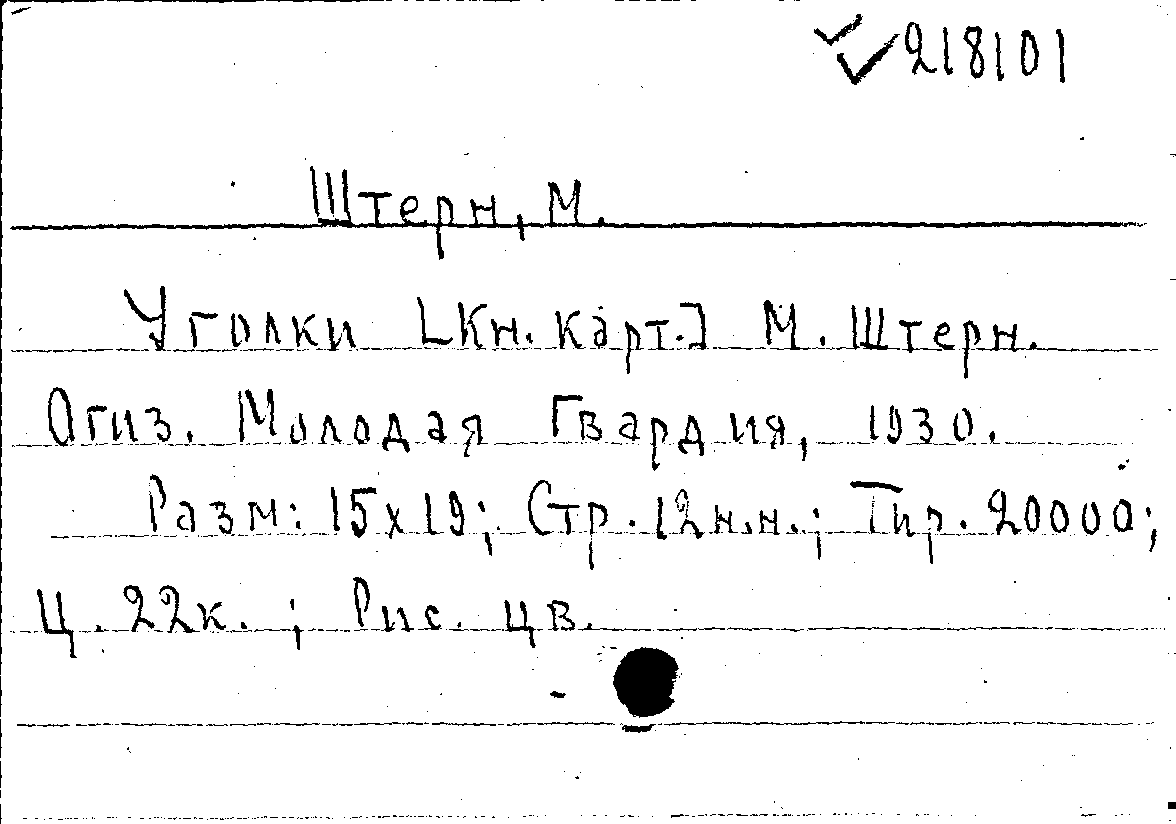 218101
Штерн, М.
Уголки [Кн. карт.] М. Штерн.
Огиз. Молодая Гвардия, 1930.
Разм: 15х19; Стр. 12 н.н.; Тир. 20000;
Ц. 22к. ; Рис. цв.